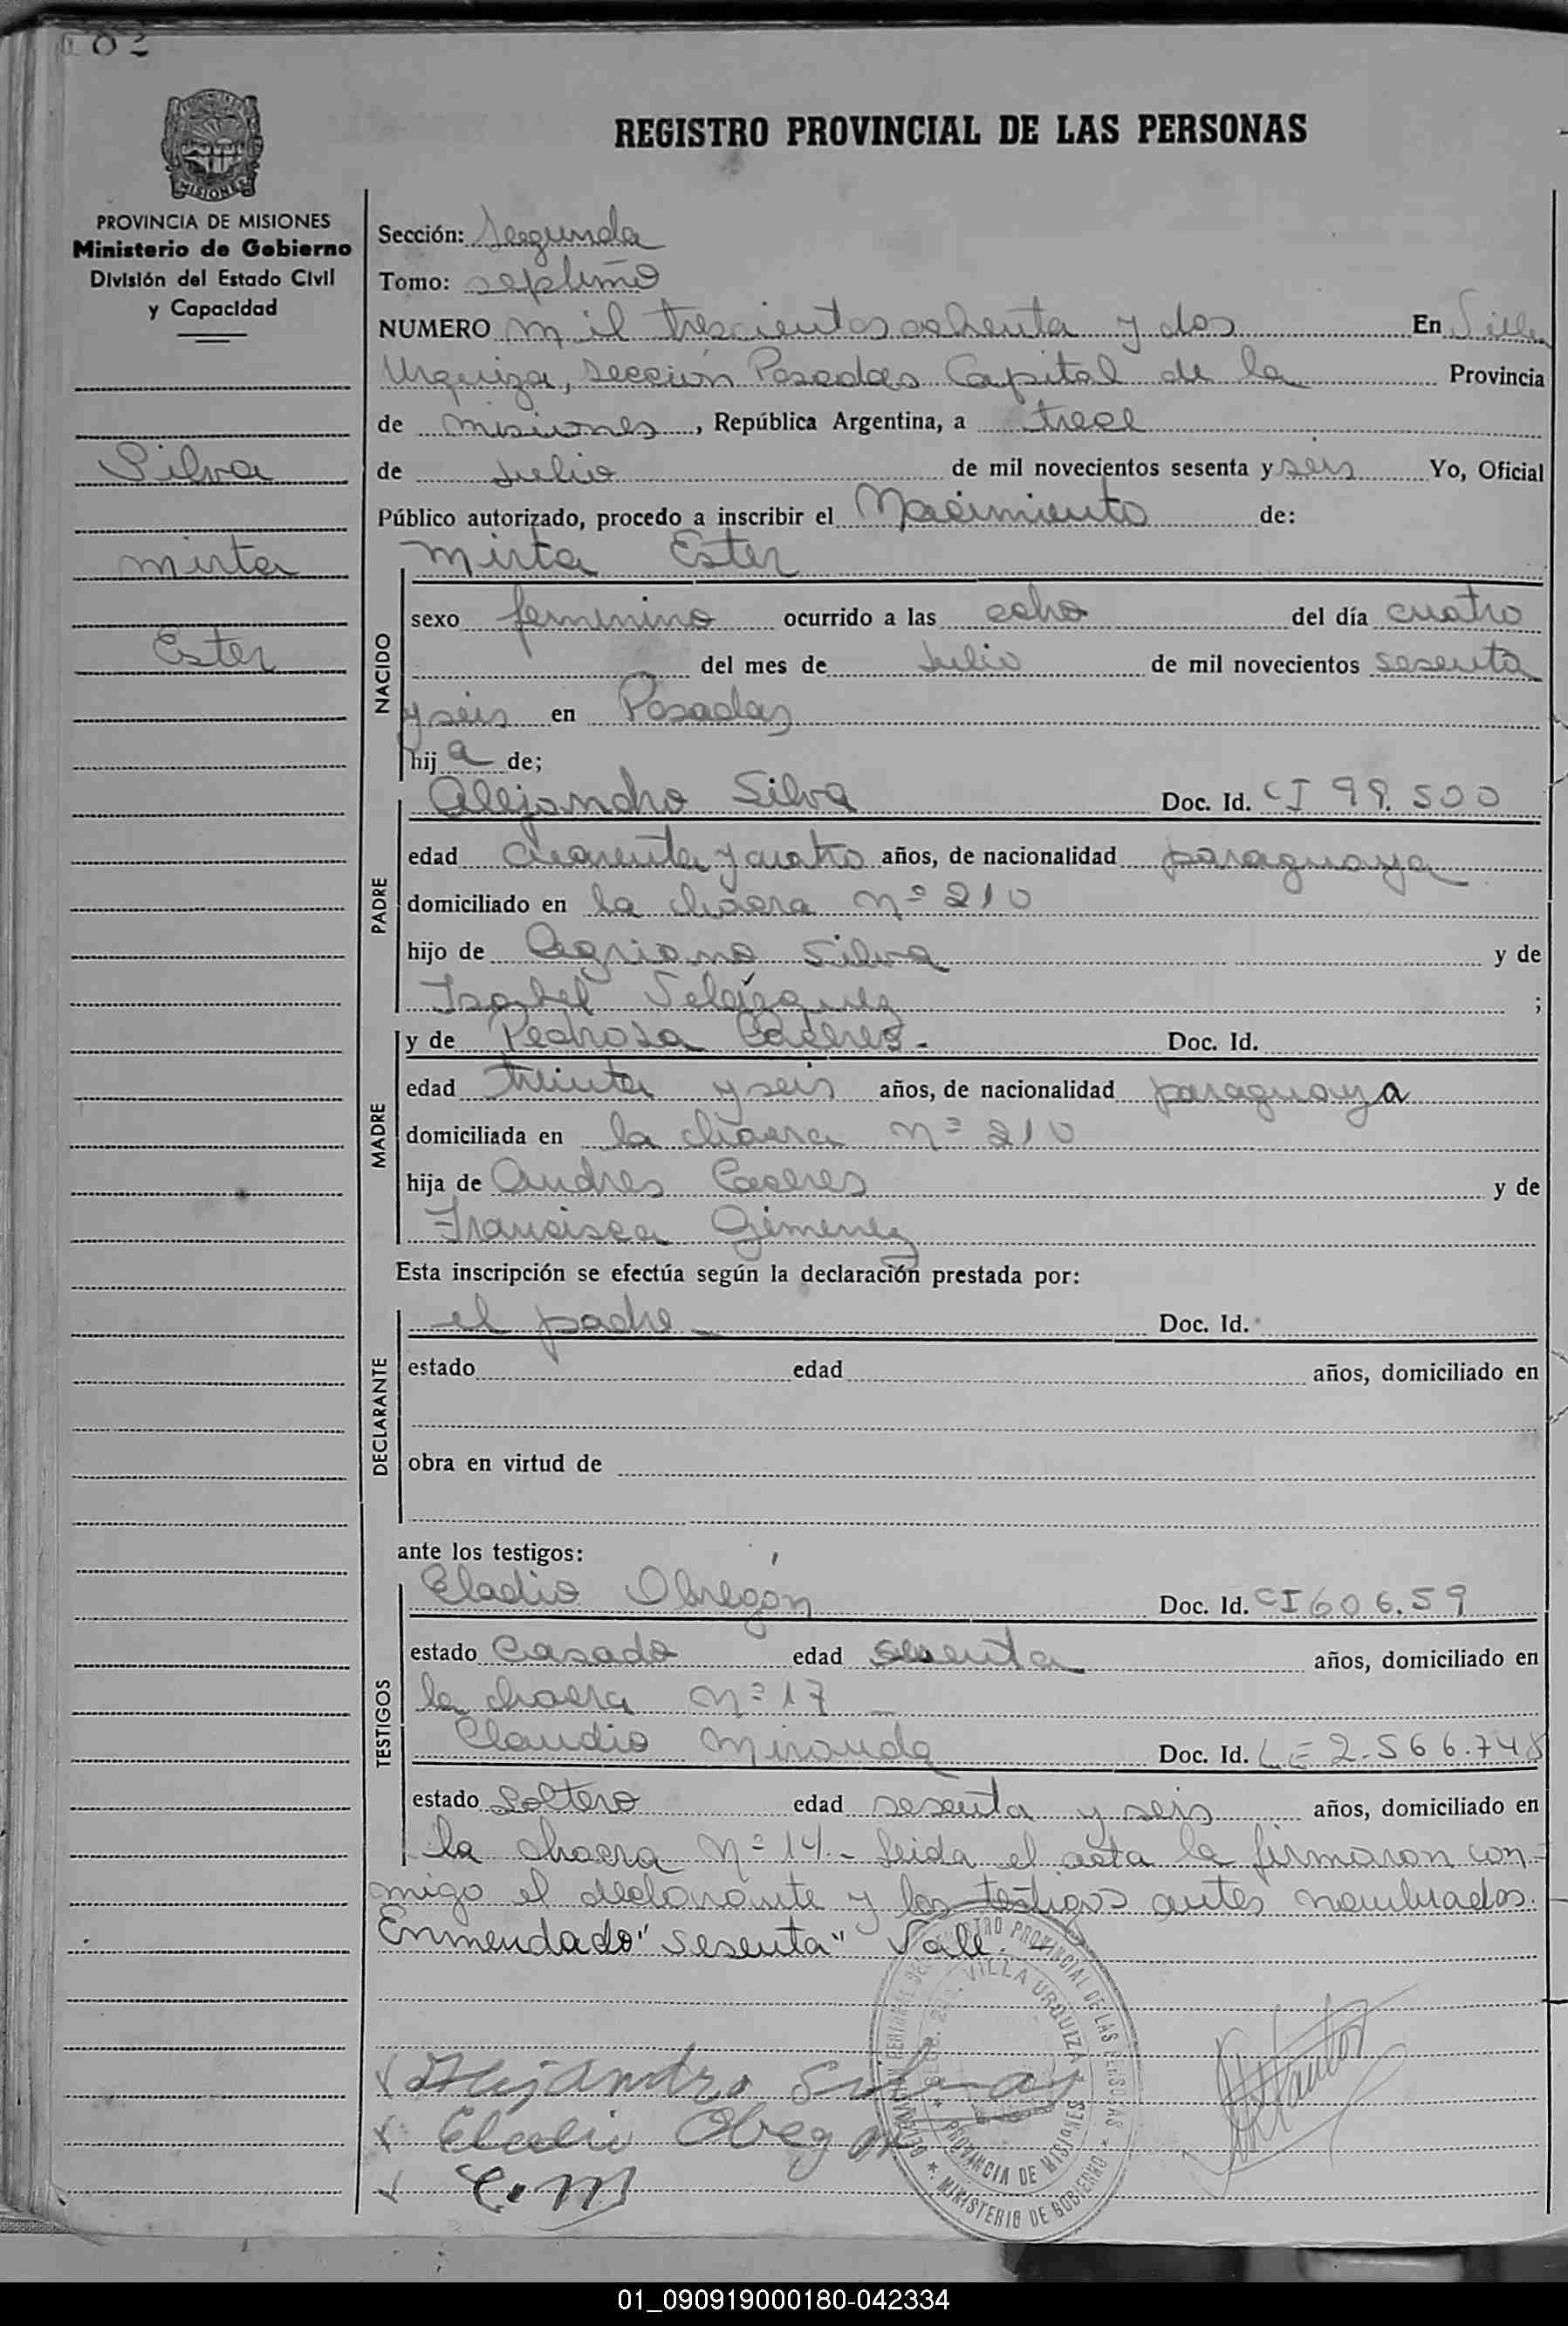 REGISTRO PROVINCIAL DE LAS PERSONAS
MISIONES
PROVINCIA DE MISIONES
Ministerio de Gobierno
División del Estado Civil
y Capacidad
Silva
Mirta
Ester
Sección: Segunda
Tomo: septimo
NUMERO mil trescientos ochenta y dos En Villa
Urquiza, sección Posadas Capital de la Provincia
de Misiones, República Argentina, a trece
de Julio de mil novecientos sesenta y seis Yo, Oficial
Público autorizado, procedo a inscribir el Nacimiento de:
NACIDO
Mirta Ester
sexo femenino ocurrido a las ocho del día cuatro
del mes de Julio de mil novecientos sesenta
y seis en Posadas
hija de;
PADRE
Alejandro Silva Doc. Id. CI 99.500
edad cuarenta y cuatro años, de nacionalidad paraguaya
domiciliado en la chacra nº 210
hijo de Silva y de
Isabel Velázquez ;
MADRE
y de Pedrosa Caceres.- Doc. Id.
edad treinta y seis años, de nacionalidad paraguaya
domiciliada en la chacra nº 210
hija de Andres Caceres y de
Francisca Gimenez
Esta inscripción se efectúa según la declaración prestada por:
DECLARANTE
el padre - Doc. Id.
estado edad años, domiciliado en
obra en virtud de
ante los testigos:
TESTIGOS
Eladio Obregón Doc. Id. CI 606.59
estado Casado edad sesenta años, domiciliado en
la chacra nº 17 -
Claudio Miranda Doc. Id. LE 2.566.748
estado Soltero edad sesenta y seis años, domiciliado en
la chacra nº 14.- Leida el acta la firmaron con-
migo el declarante y los testigos antes nombrados.
Enmendado "sesenta" Vale.
REGISTRO PROVINCIAL DE LAS PERSONAS
VILLA URQUIZA
PROVINCIA DE MISIONES
MINISTERIO DE GOBIERNO
x Alejandro Silva
x Eladio Obregon
x C. M
01_090919000180-042334